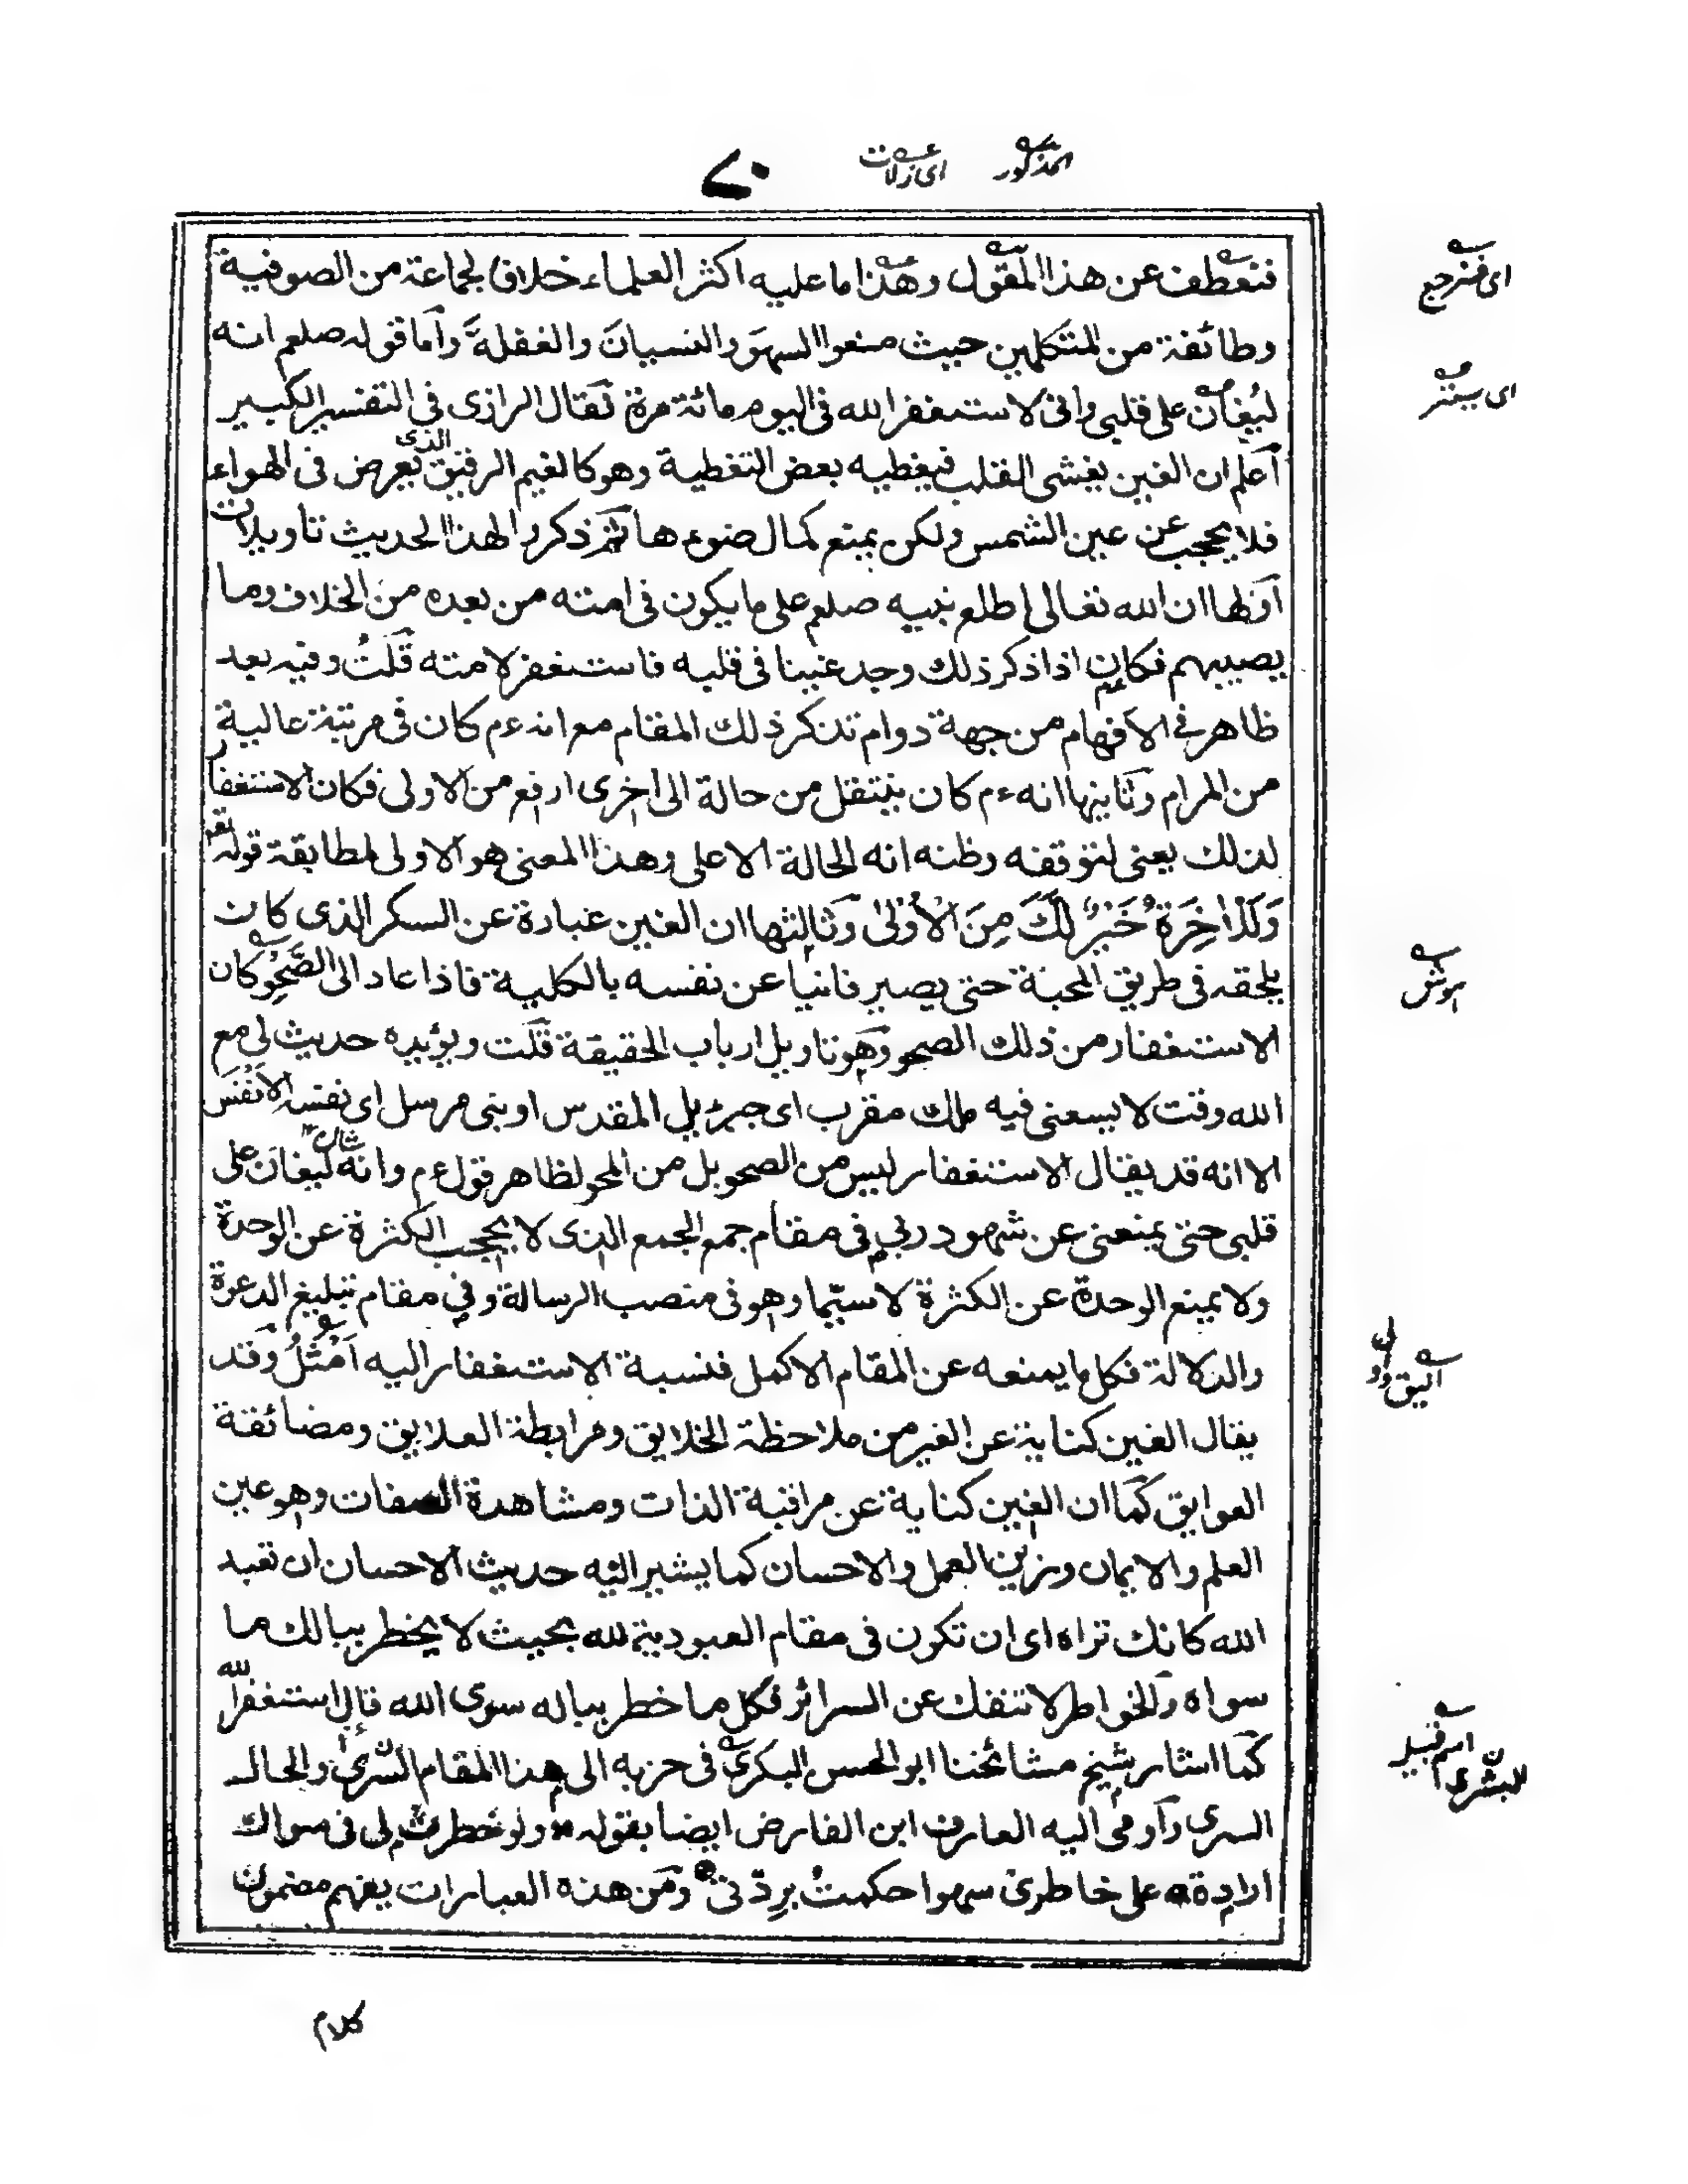 المذكور
اى زلات
٧٠
فتعطف عن هذا المقول وهذا ما عليه اكثر العلماء خلافا لجماعة من الصوفية
وطائفة من المتكلمين حيث منعوا السهوَ والنسيانَ والغفلةَ واما قوله صلعم انه
ليُغان على قلبى وانى لاستغفر الله فى اليوم مائة مرة فقال الرازى فى التفسير الكبير
اعلم ان الغين يغشى القلب فيغطيه بعض التغطية وهو كالغيم الرقيق الذى يعرض فى الهواء
فلا يحجب عن عين الشمس ولكن يمنع كمال ضوءها ثم ذكر والهذا الحديث تاويلات
اولها ان الله تعالى اطلع نبيه صلعم على ما يكون فى امته من بعده من الخلاف وما
يصيبهم فكان اذا ذكر ذلك وجد غينا فى قلبه فاستغفر لامته قلتُ وفيه بعد
ظاهر فى الافهام من جهة دوام تذكر ذلك المقام مع انه ءم كان فى مرتبة عالية
من المرام وثانيها انه ءم كان ينتقل من حالة الى اخرى ارفع من الاولى فكان الاستغفار
لذلك يعنى لتوقفه وظنه انه الحالة الاعلى وهذا المعنى هو الاولى لمطابقة قوله تعم
وَلَلْاٰخِرَةُ خَيْرٌ لَّكَ مِنَ الْاُوْلٰى وثالثها ان الغين عبارة عن السكر الذى كان
يلحقه فى طريق المحبة حتى يصير فانيا عن نفسه بالكلية فاذا عاد الى الصَّحْوِ كان
الاستغفار من ذلك الصحو وهو تاويل ارباب الحقيقة قلت ويؤيده حديث لى مع
الله وقت لا يسعنى فيه ملك مقرب اى جبرئيل المقدس او نبى مرسل اى نفسه الانفس
الا انه قد يقال الاستغفار ليس من الصحو بل من المحو لظاهر قوله ءم وانه ليغان على
قلبى حتى يمنعنى عن شهود ربى فى مقام جمع الجمع الذى لا يحجب الكثرة عن الوحدة
ولا يمنع الوحدة عن الكثرة لا سيّما وهو فى منصب الرسالة وفى مقام تبليغ الدعوة
والدلالة فكل ما يمنعه عن المقام الاكمل فنسبة الاستغفار اليه اَمْثَلُ وقد
يقال الغين كناية عن الغير من ملاحظة الخلايق ومرابطة العلايق ومضائقة
العوايق كما ان الغين كناية عن مراقبة الذات ومشاهدة الصفات وهو عين
العلم والايمان وزين العمل والاحسان كما يشير اليه حديث الاحسان ان تعبد
الله كانك تراه اى ان تكون فى مقام العبودية لله بحيث لا يخطر ببالك ما
سواه والخواطر لا تنفك عن السرائر فكل ما خطر بباله سوى الله قال استغفر الله
كما اشار شيخ مشائخنا ابو الحسن البكرى فى حزبه الى هذا المقام السرى والحال
السرى واومى اليه العارف ابن الفارض ايضا بقوله ولو خطرت لى فى سواك
ارادة على خاطرى سهوا حكمتُ بردّتى ومن هذه العبارات يفهم مضمون
اى فنرجع
اى يستر
ہوش
اليق
اسم قبيلہ
كلام